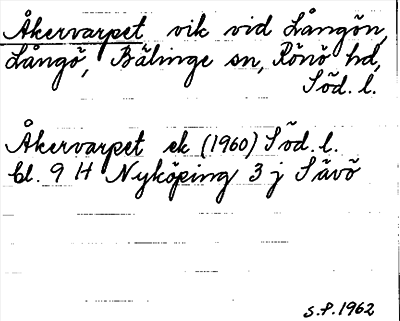 Åkervarpet vik vid Långön,
Långö, Bälinge sn, Rönö hd,
Söd. l.
Åkervarpet ek (1960) Söd. l.
bl. 9 H Nyköping 3 j Sävö
S.P. 1962